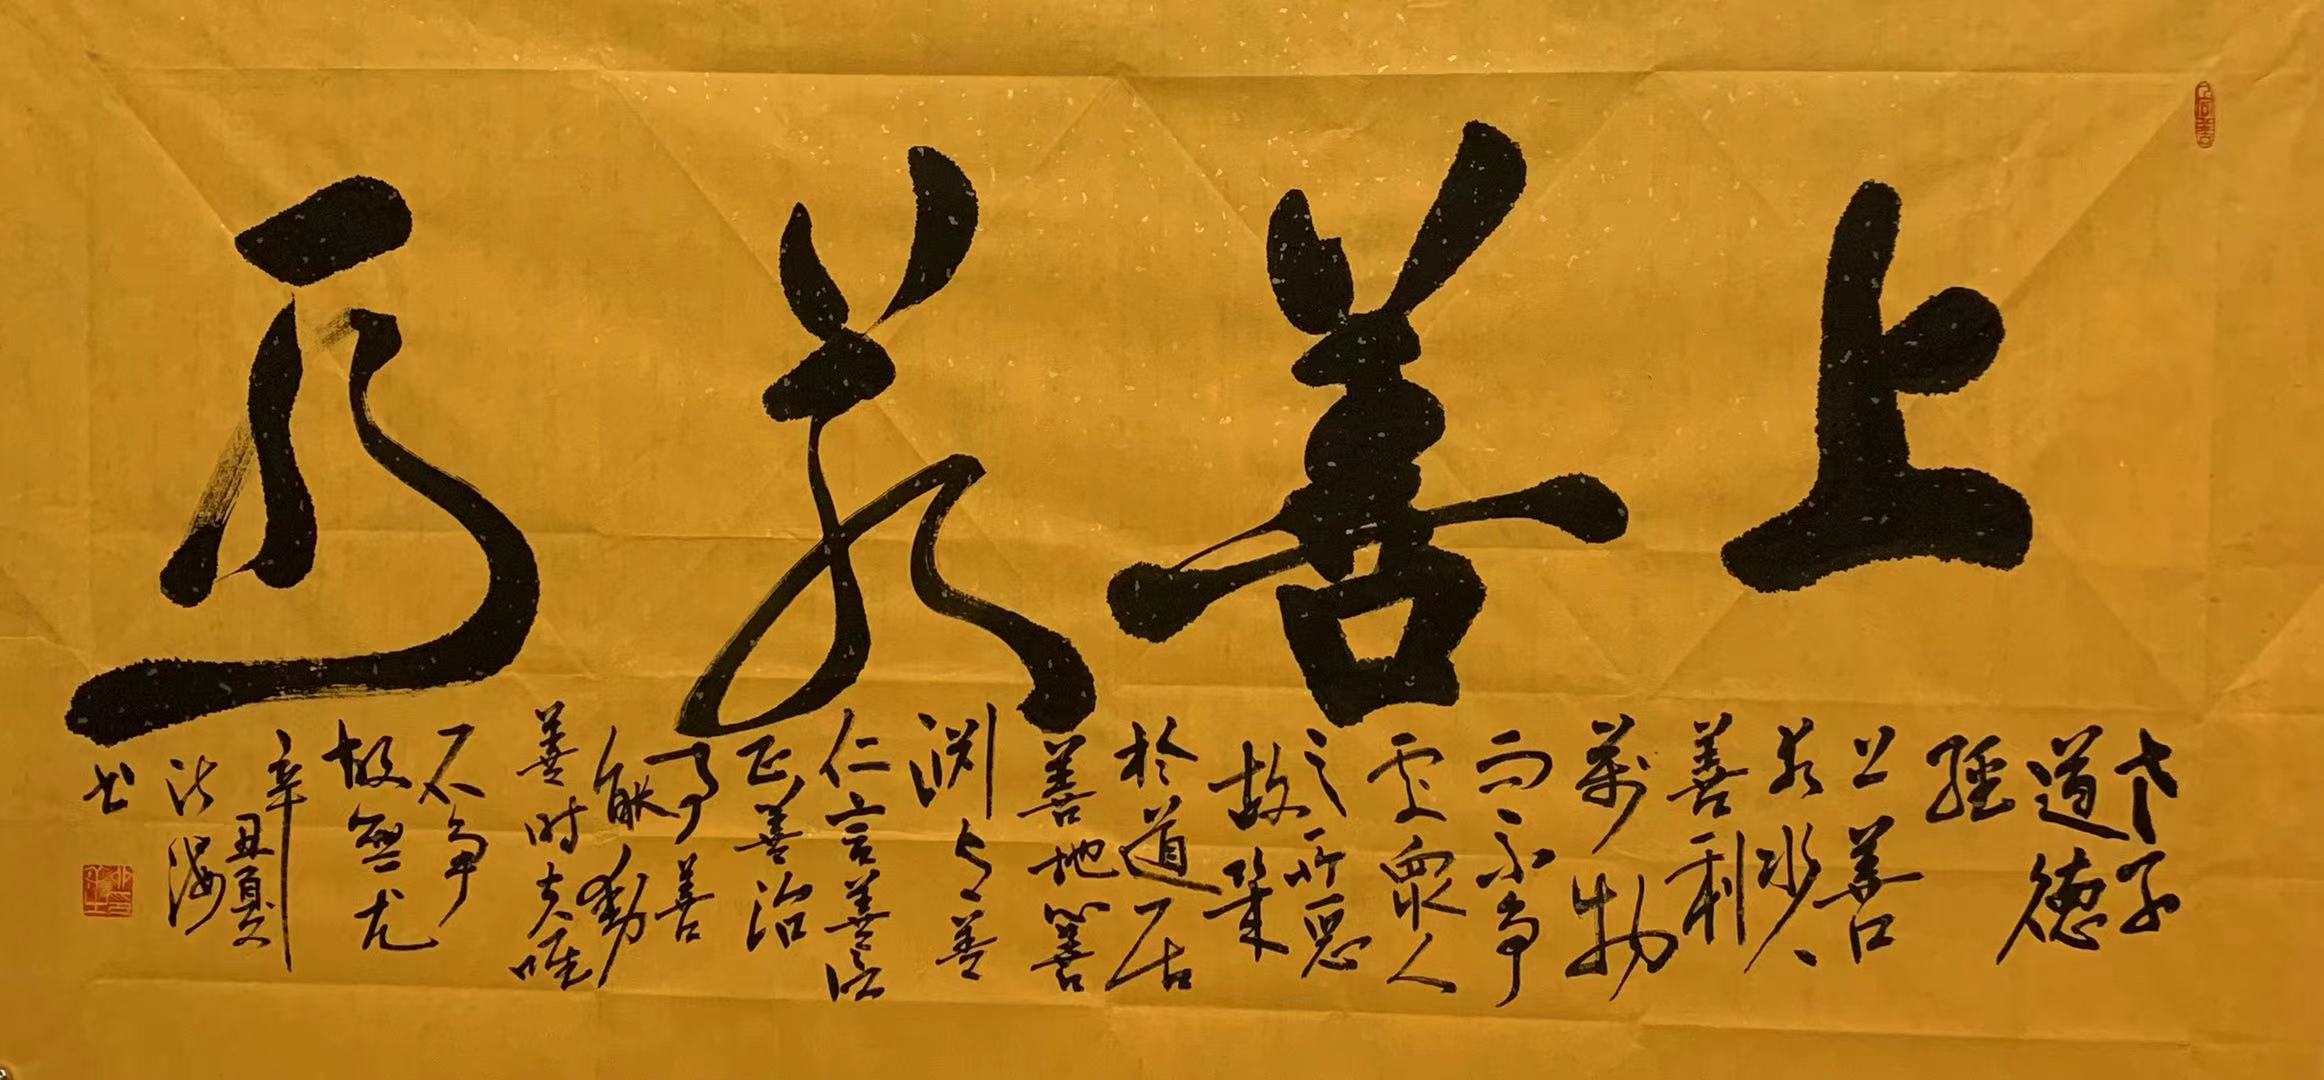 上善若水
老子
道德
經
上善
若水〻
善利
萬物
而不争
处衆人
之所惡
故幾
於道居
善地心善
渊与善
仁言善信
正善治
事善
能動
善时夫唯
不争
故無尤
辛丑夏
书